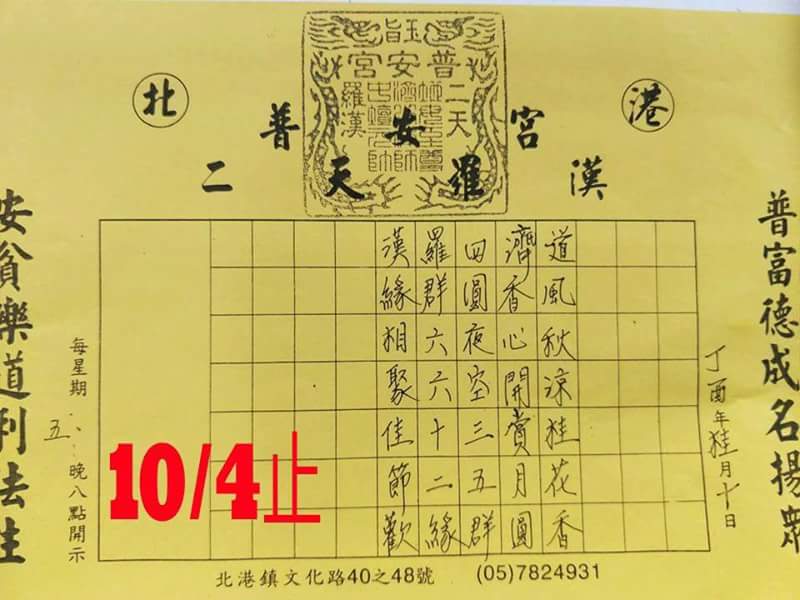 玉旨
普安宮
二天
羅漢
北港
普安宮
二天羅漢
普富德成名揚眾
丁酉年桂月十日
道風秋涼桂花香
濟香心開賞月圓
四圓夜空三五群
羅群六六十二緣
漢緣相聚佳節歡
10/4止
每星期五晚八點開示
安貧樂道利法生
北港鎮文化路40之48號 (05)7824931